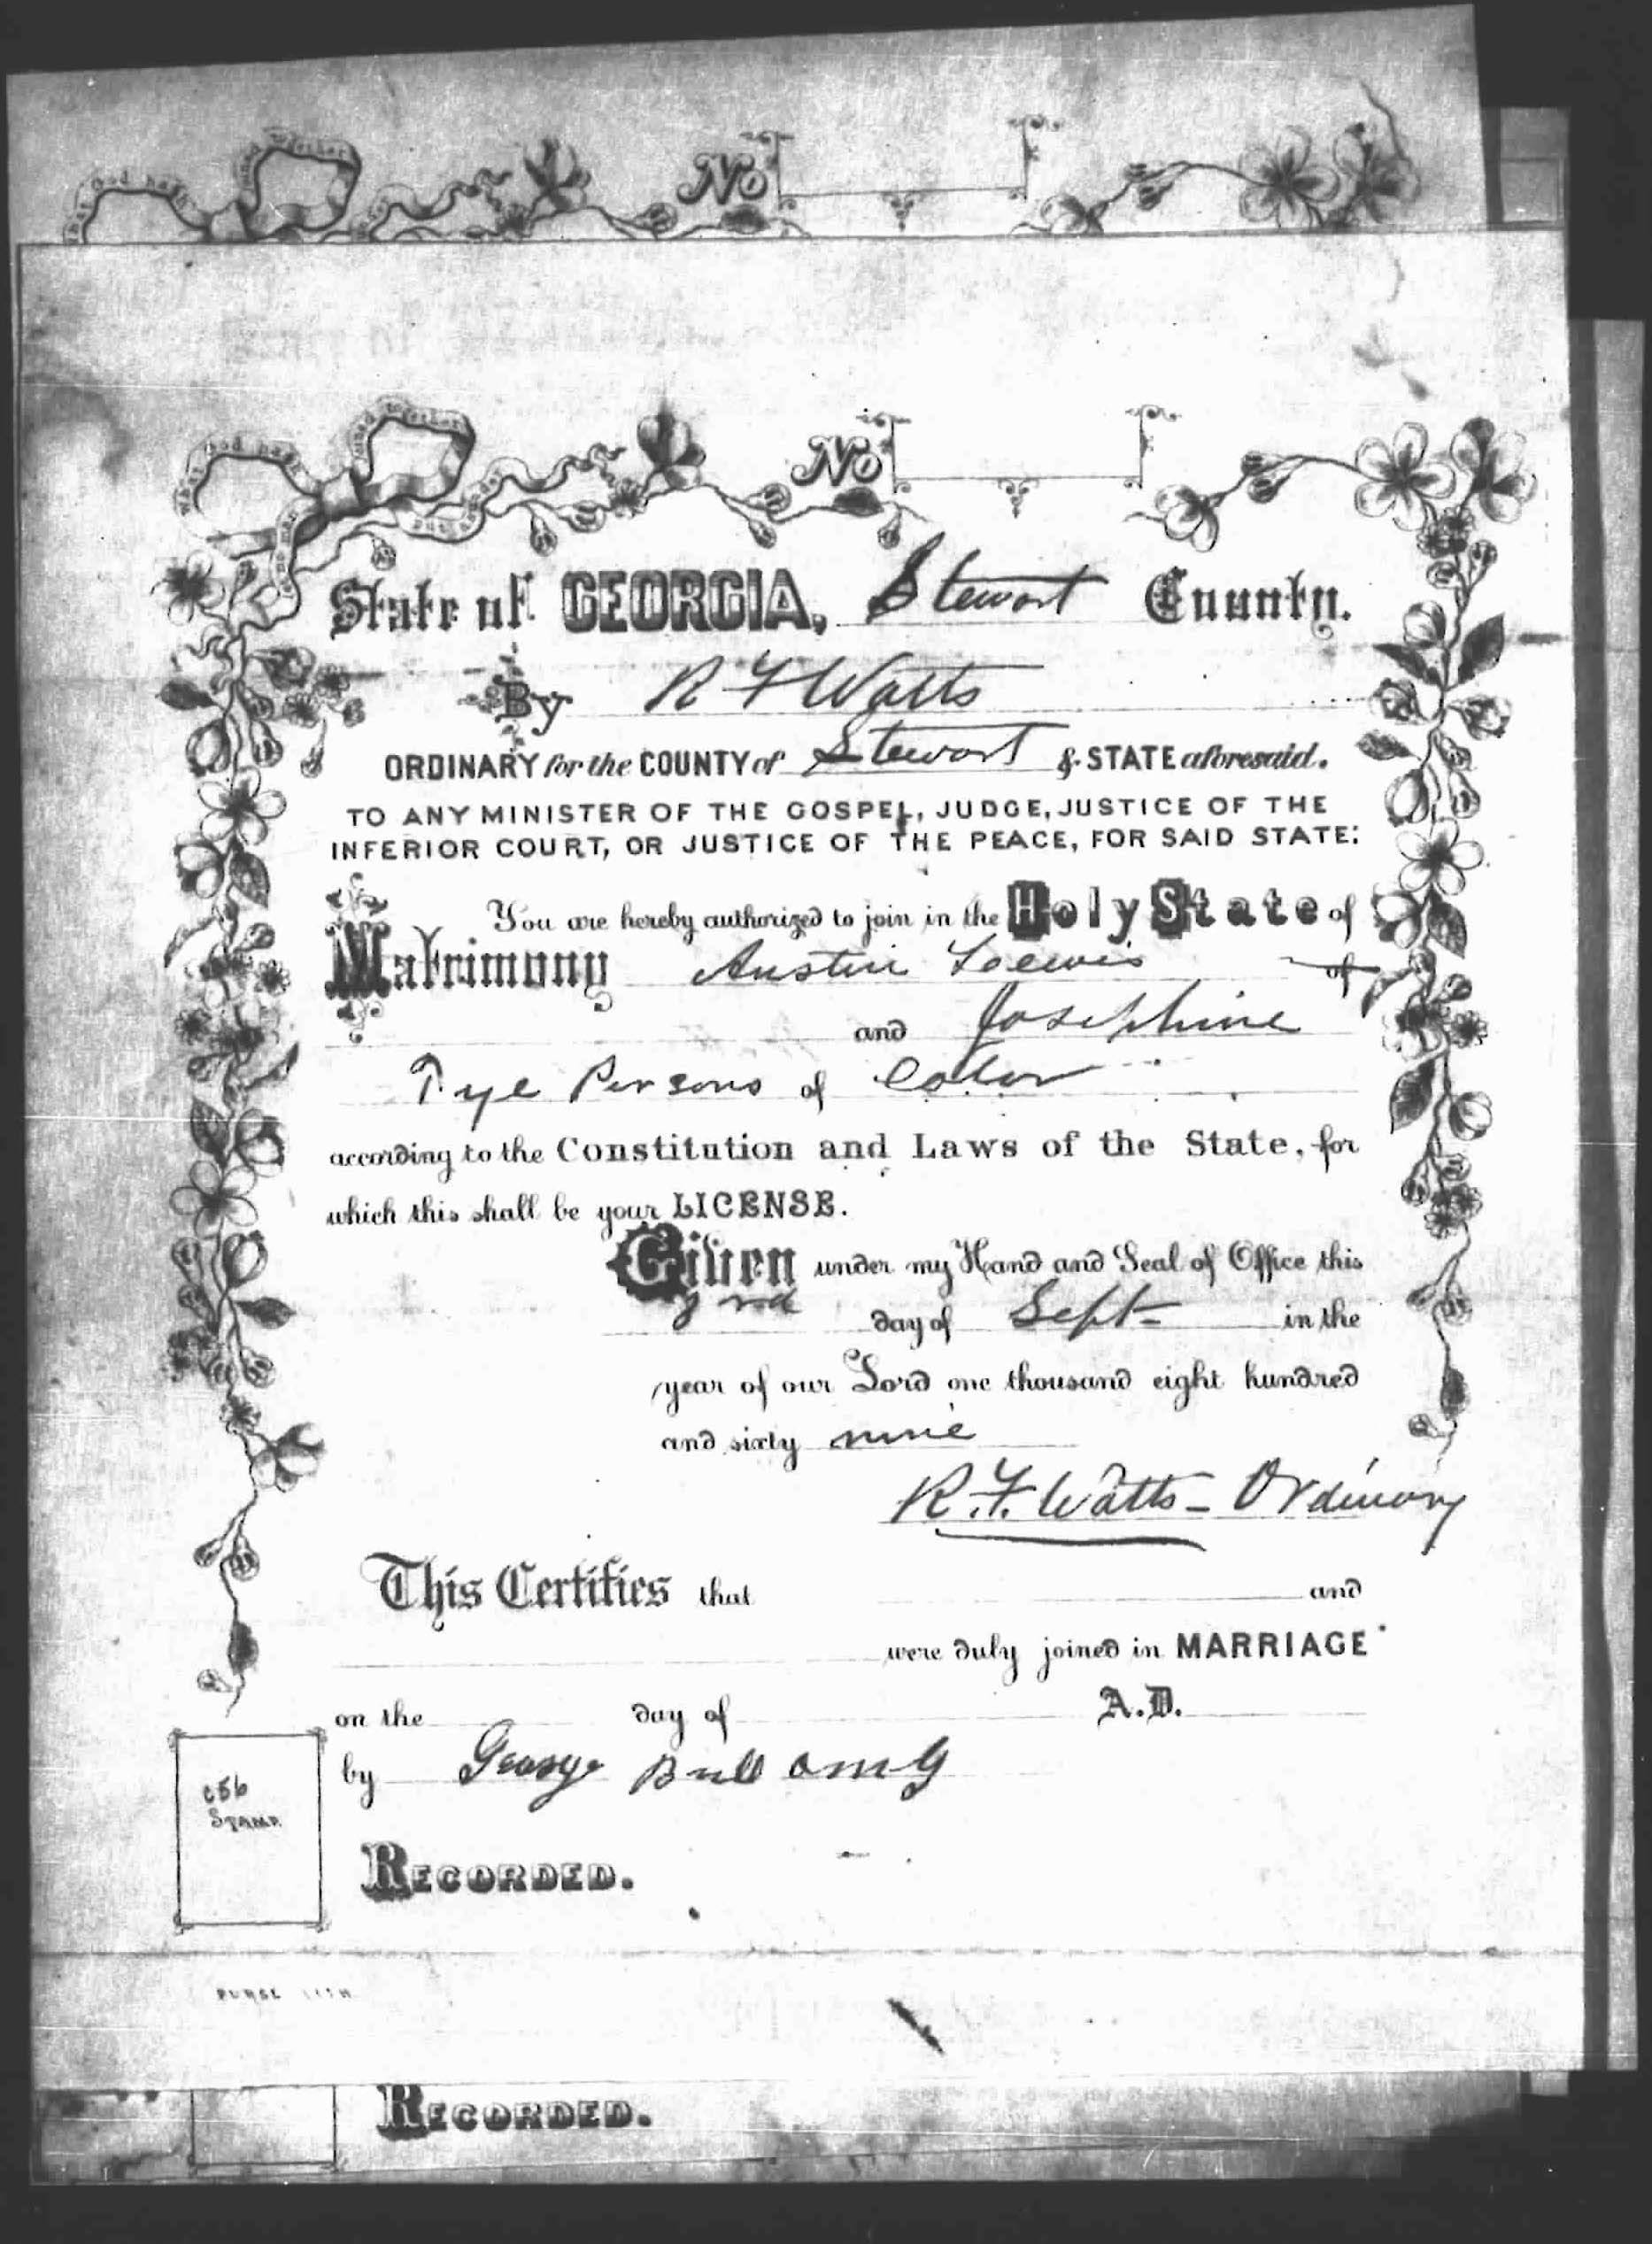 What God hath joined together
No
What God hath joined together
let no man put asunder
No
State of GEORGIA, Stewart County.
By R F Watts
ORDINARY for the COUNTY of Stewart & STATE aforesaid.
TO ANY MINISTER OF THE GOSPEL, JUDGE, JUSTICE OF THE
INFERIOR COURT, OR JUSTICE OF THE PEACE, FOR SAID STATE:
You are hereby authorized to join in the Holy State of
Matrimony Austin Loewis of
and Josephine
Pye Persons of Color
according to the Constitution and Laws of the State, for
which this shall be your LICENSE.
Given under my Hand and Seal of Office this
day of Sept in the
year of our Lord one thousand eight hundred
and sixty nine
R. F. Watts - Ordinary
This Certifies that and
were duly joined in MARRIAGE
on the day of A.D.
by George Bull O M G
c56
STAMP.
RECORDED.
RECORDED.